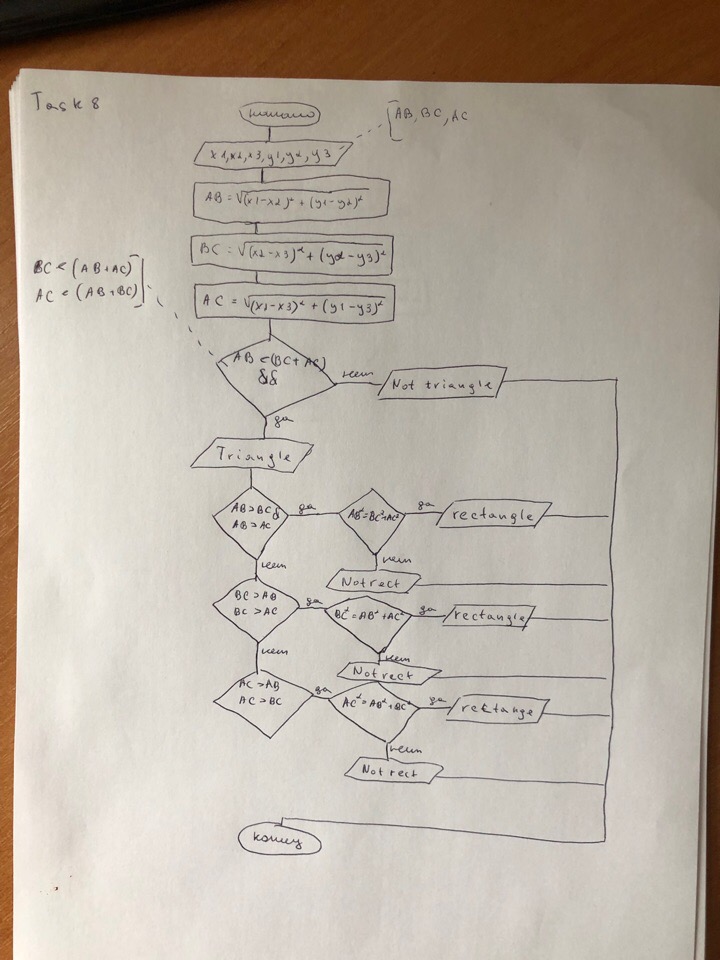 Task 8
начало
AB, BC, AC
x1,x2,x3,y1,y2,y3
AB = √(x1-x2)² + (y1-y2)²
BC = √(x2-x3)² + (y2-y3)²
BC < (AB+AC)
AC < (AB+BC)
AC = √(x1-x3)² + (y1-y3)²
AB < (BC+AC)
&&
нет
Not triangle
да
Triangle
AB>BC&
AB>AC
да
AB²=BC²+AC²
да
rectangle
нет
нет
Not rect
BC>AB
BC>AC
да
BC²=AB²+AC²
да
rectangle
нет
нет
Not rect
AC>AB
AC>BC
да
AC²=AB²+BC²
да
rectange
нет
Not rect
конец